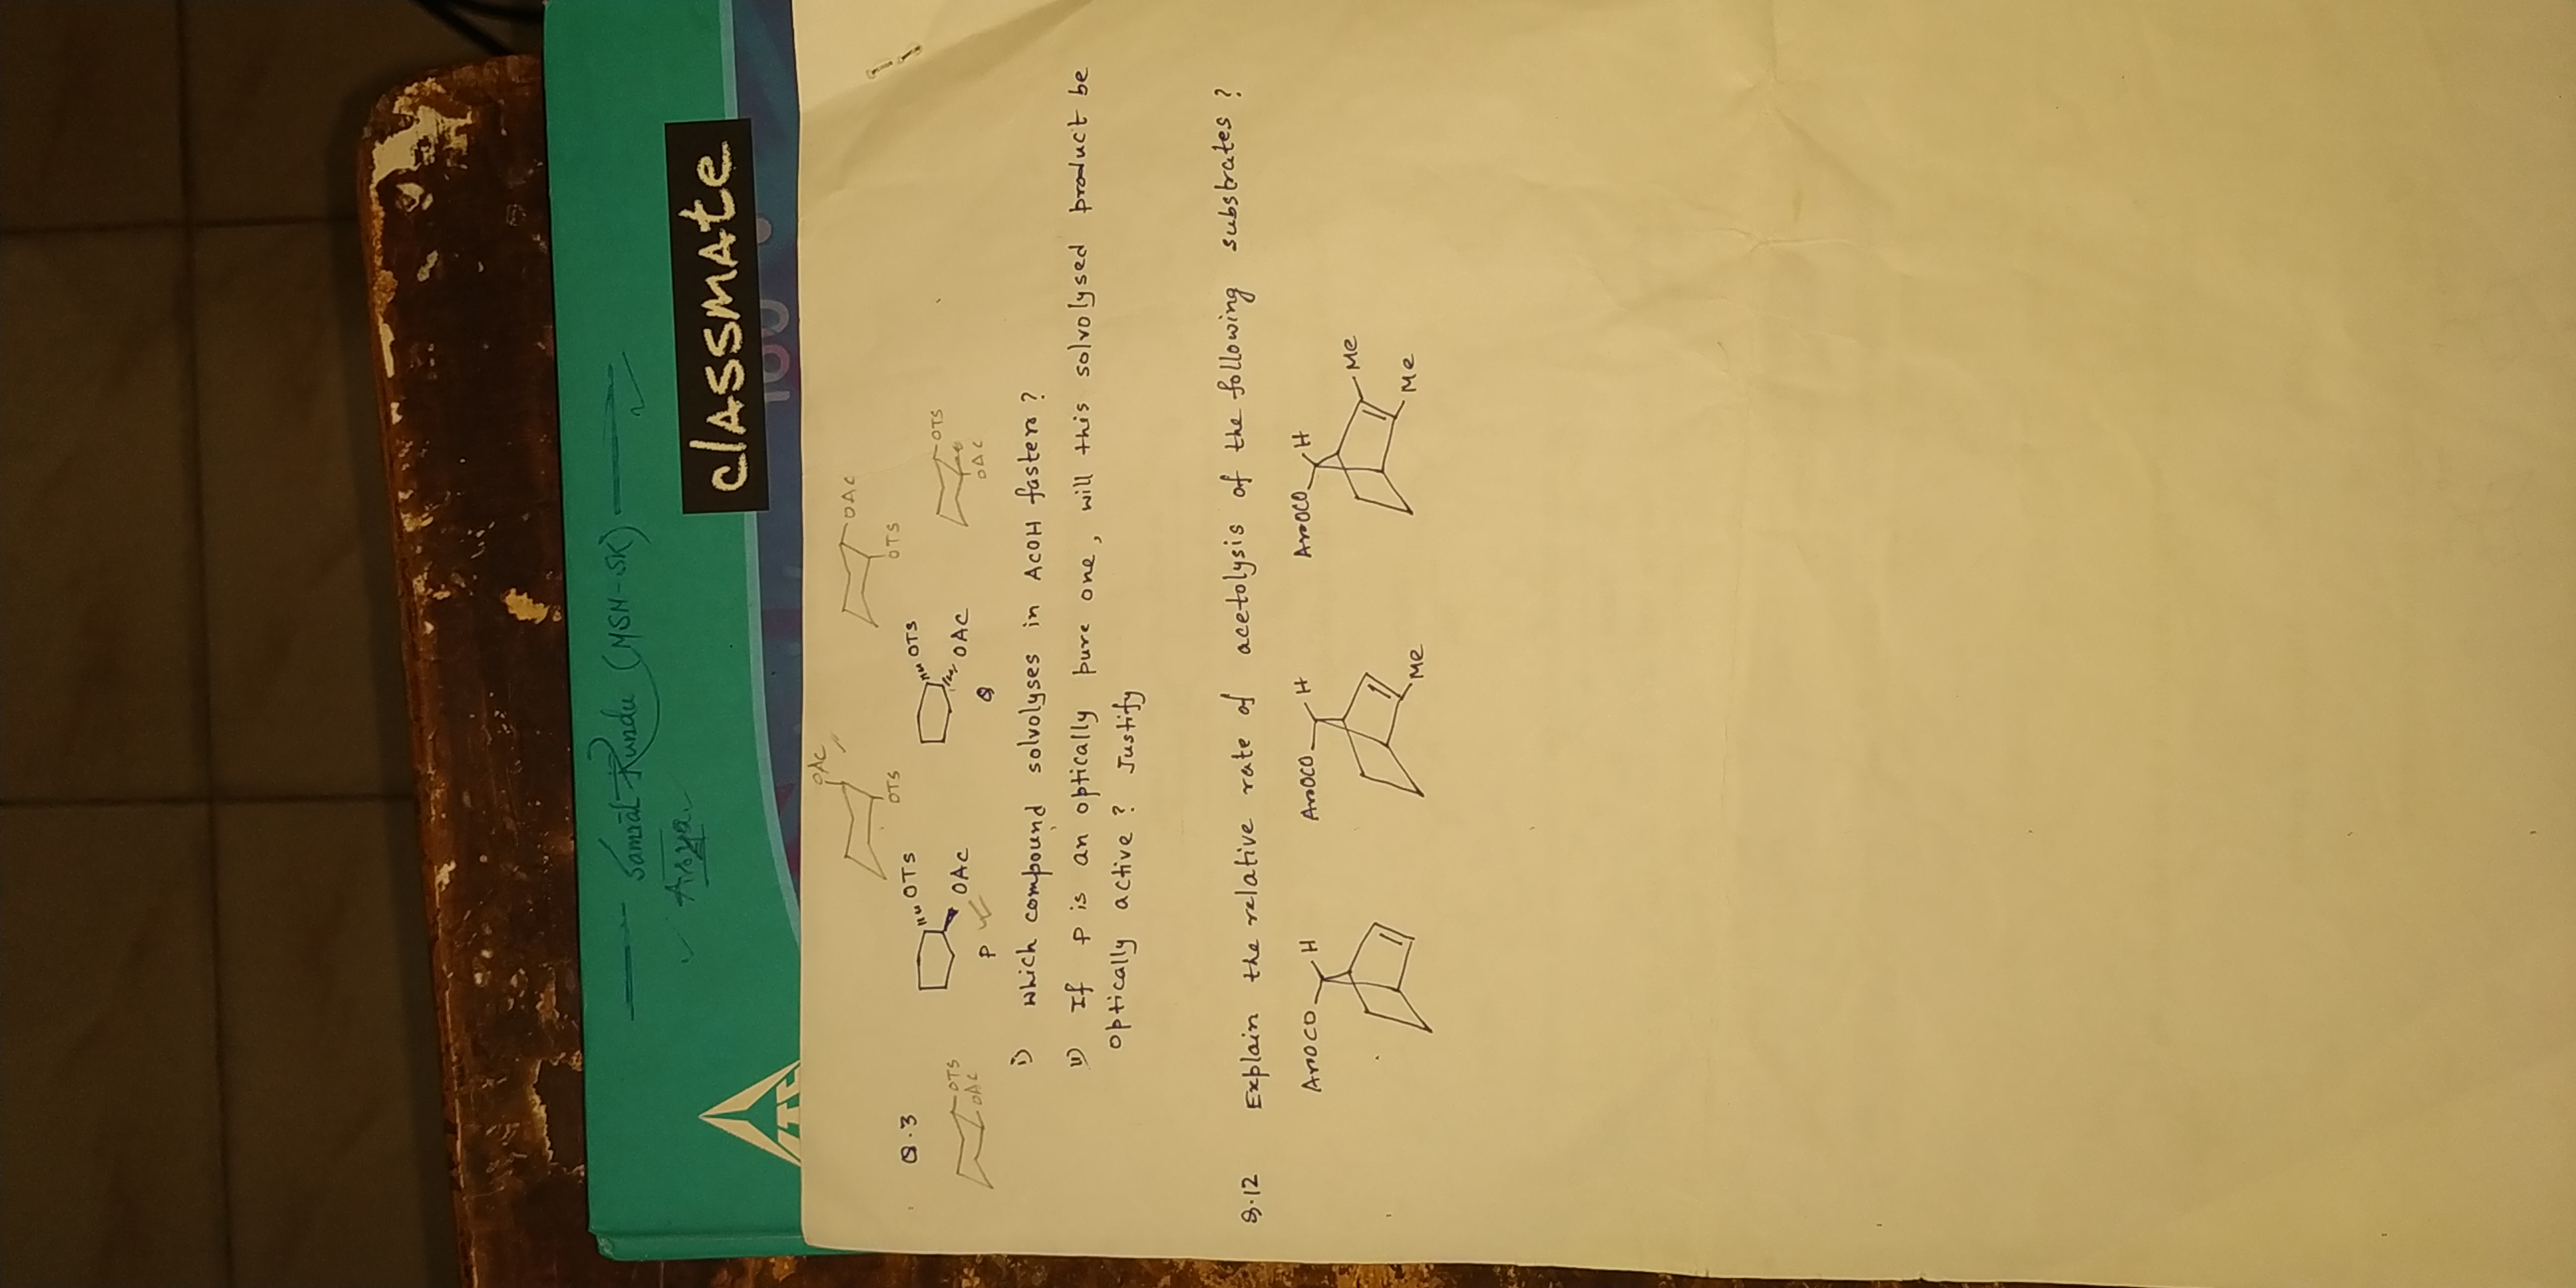 Samrat Kundu (MSN-SK)
classmate
ITC
OAc
OTS
OAc
OTS
Q.3
OTS
OAc
OTS
OAc
P
OTS
OAc
Q
OTS
OAc
i) which compound solvolyses in AcOH faster ?
ii) If P is an optically pure one, will this solvolysed product be
optically active ? Justify
Q.12 Explain the relative rate of acetolysis of the following substrates ?
ArOCO H
ArOCO H
Me
ArOCO H
Me
Me